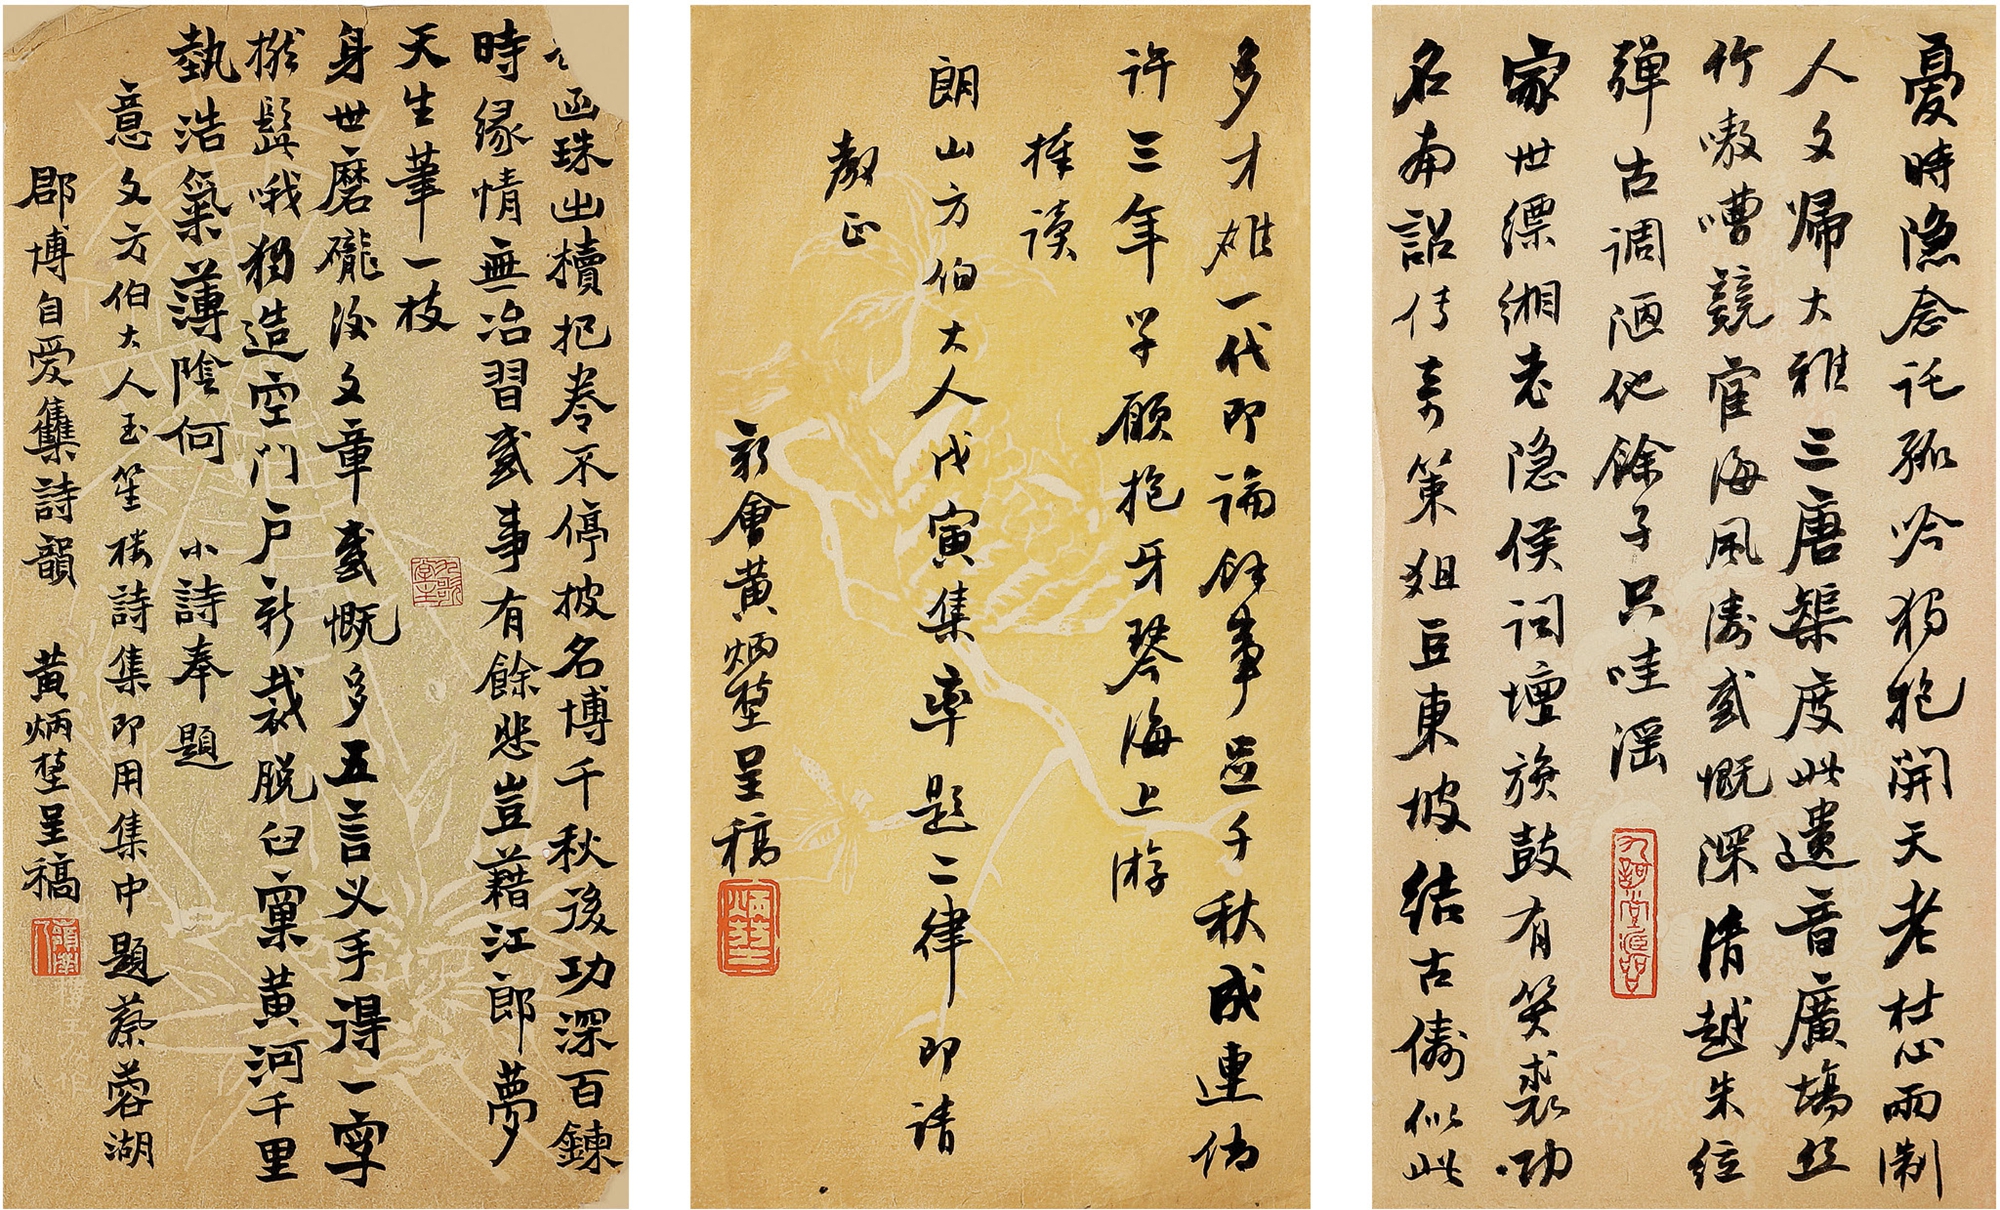 憂時隐念託孤吟獨抱開天老杜心兩制
人文歸大雅三唐榘度此遺音廣場絲
竹嗷嘈競宦海風濤感慨深清越朱絃
彈古調洒他餘子只哇滛
家世縹緗老隐侯詞壇旗鼓有箕裘功
名南詔傳奇策俎豆東坡結古儔似此
多才雄一代即論餘事足千秋成連倘
許三年学願抱牙琴海上游
捧读
朗山方伯大人戊寅集率題二律即請
教正
新會黄炳堃呈稿
函珠出櫝把卷不停披名博千秋後功深百鍊
時緣情無冶習感事有餘悲豈藉江郎夢
天生筆一枝
身世磨礲後文章感慨多五言义手得一字
撚髭哦獨造空門户新裁脱臼窠黄河千里
執浩氣薄陰何 小詩奉題
意文方伯大人玉笙樓詩集即用集中題蔡蓉湖
郡博自愛集詩韻 黄炳堃呈稿